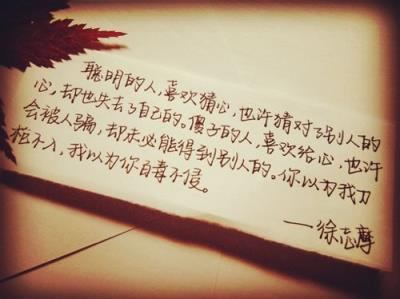 聪明的人,喜欢猜心,也许猜对了别人的
心,却也失去了自己的。傻子的人,喜欢给心,也许
会被人骗,却未必能得到别人的。你以为我刀
枪不入,我以为你百毒不侵。
—徐志摩